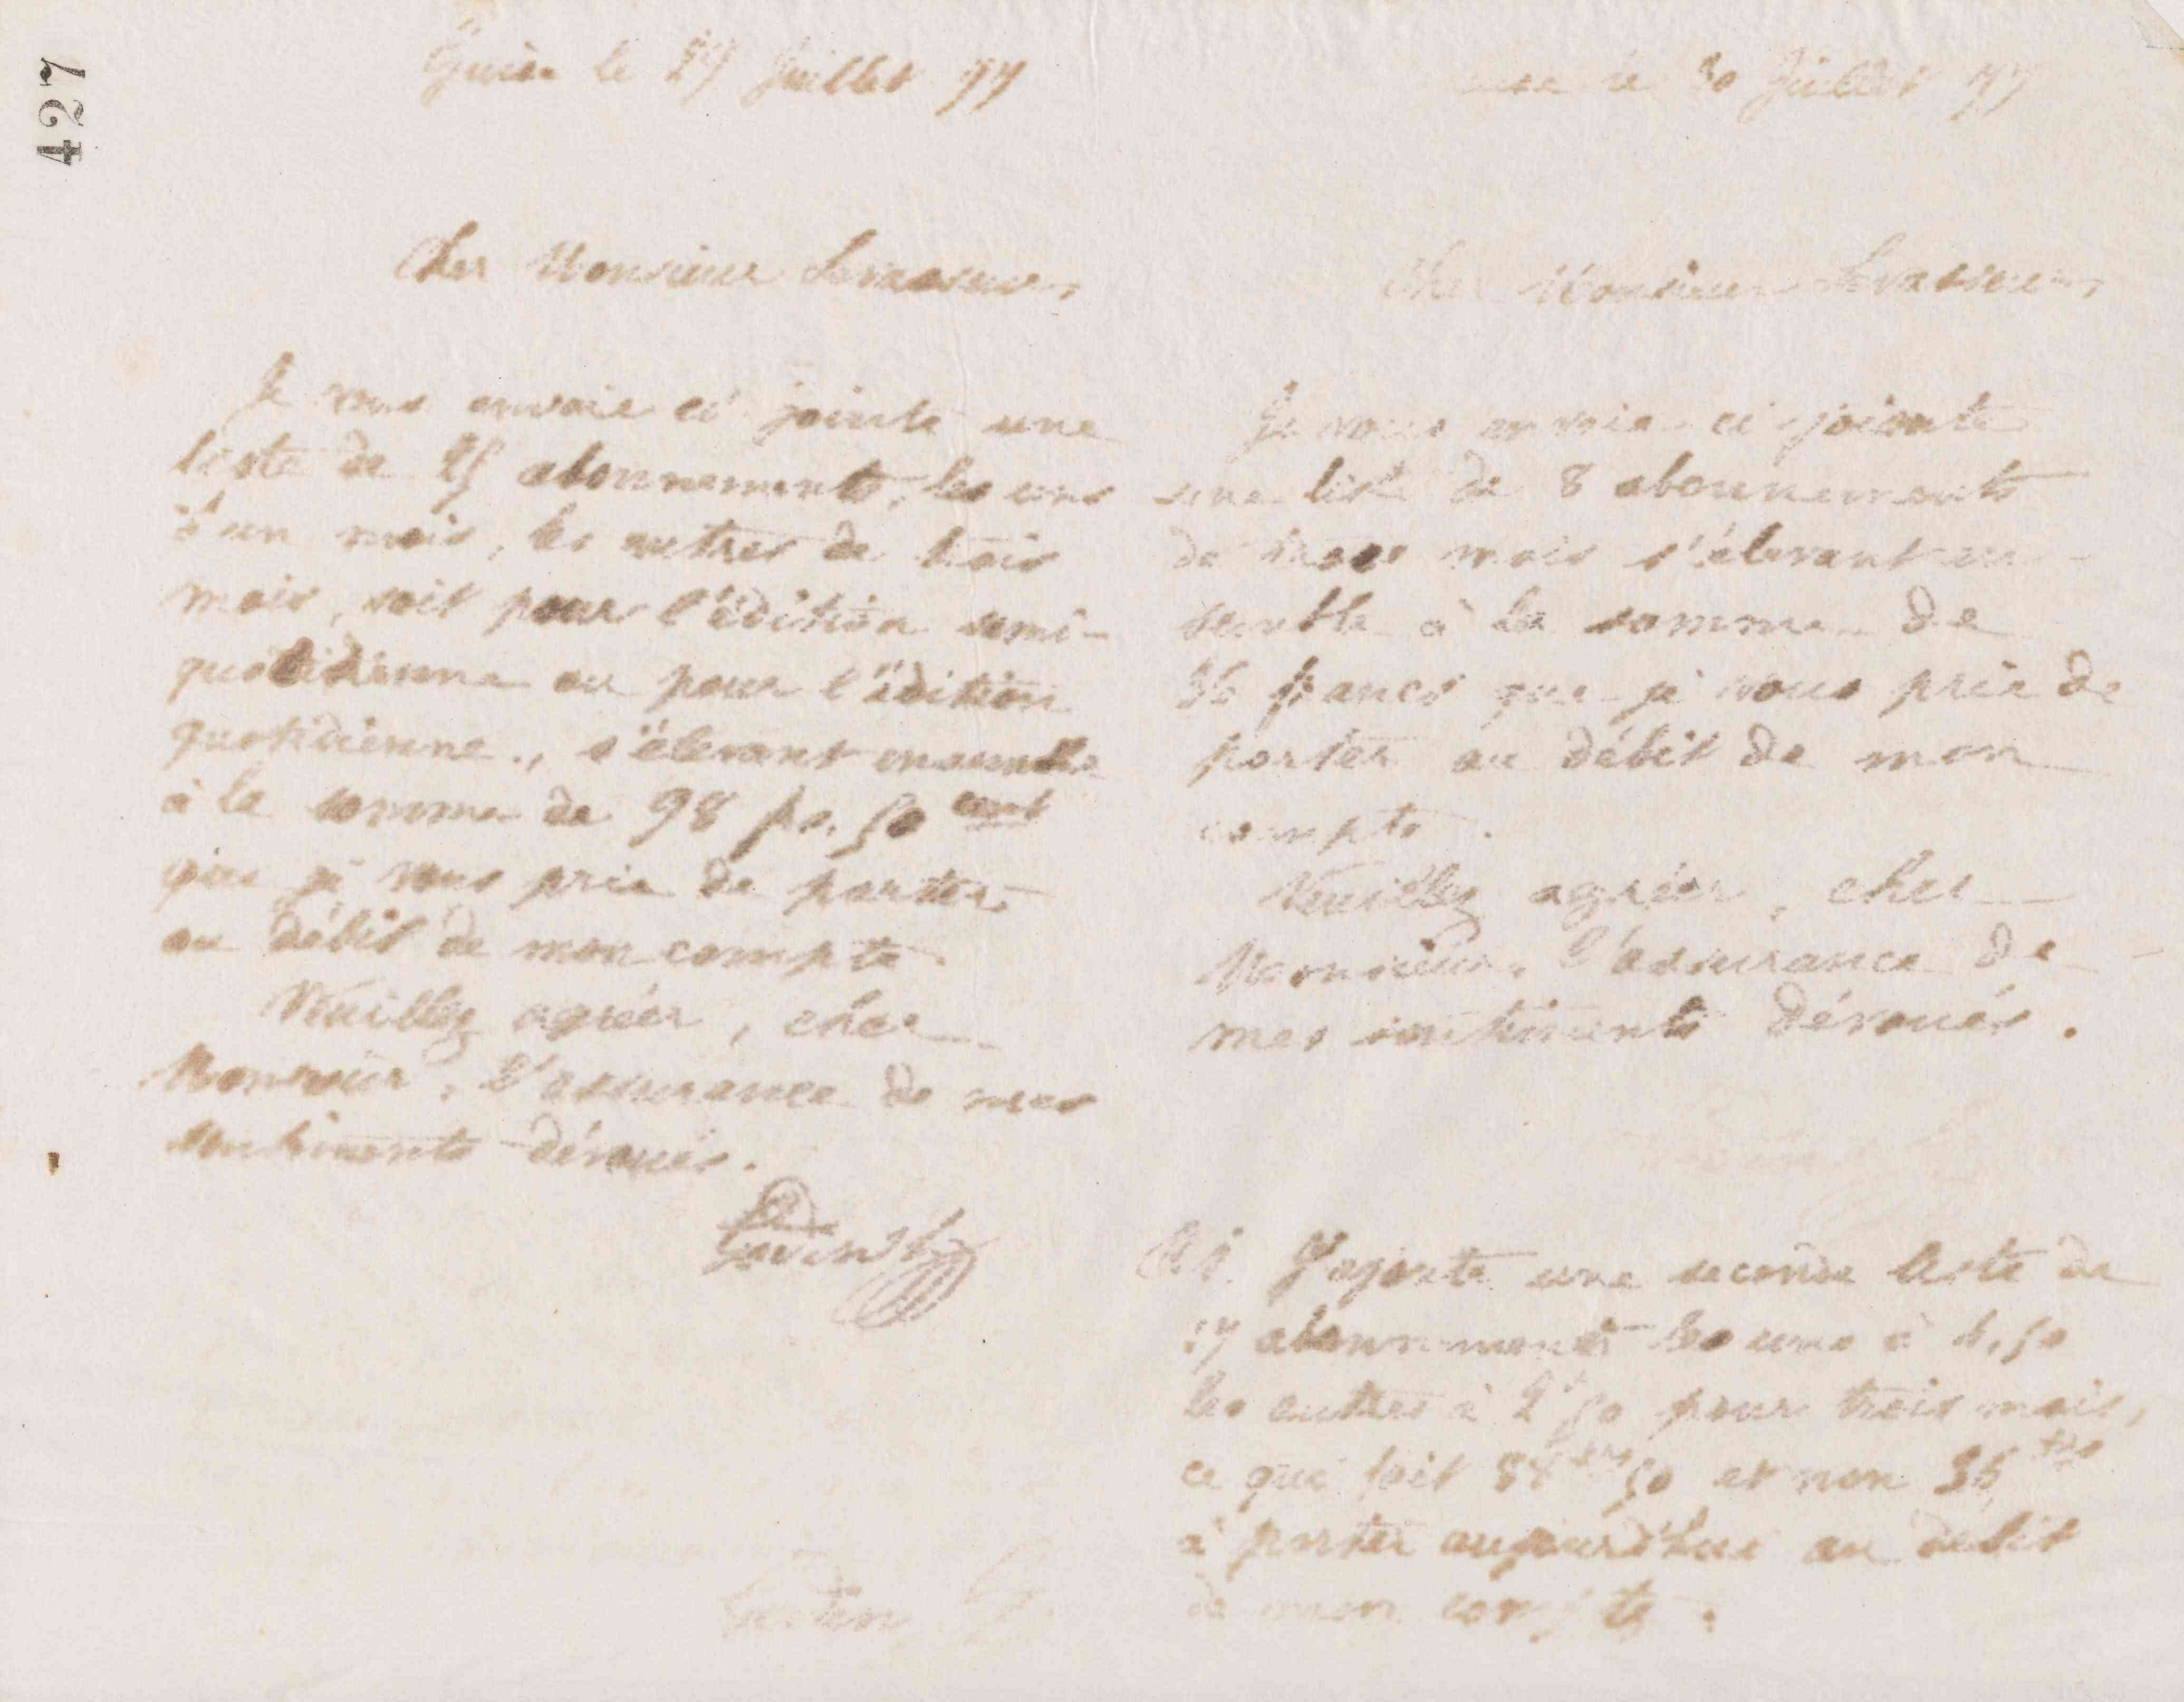 427
Guise le 27 Juillet 97
Cher Monsieur Levasseur,
Je vous envoie ci jointe une
liste de 25 abonnements, les uns
d'un mois, les autres de trois
mois, soit pour l'édition semi-
quotidienne ou pour l'édition
quotidienne, s'élevant ensemble
à la somme de 98 frs. 50 cent
que je vous prie de porter
au débit de mon compte.
Veuillez agréer, cher
Monsieur, l'assurance de mes
sentiments dévoués.
Godin
le 30 Juillet 97
Cher Monsieur Levasseur,
Je vous envoie ci jointe
une liste de 8 abonnements
de trois mois s'élevant en-
semble à la somme de
36 francs que je vous prie de
porter au débit de mon
compte.
Veuillez agréer, cher
Monsieur, l'assurance de
mes sentiments dévoués.
J'ajoute une seconde liste de
17 abonnements les uns à 4,50
les autres à 2 50 pour trois mois,
ce qui fait 88 50 et non 36 frs
à porter aujourd'hui au débit
de mon compte.